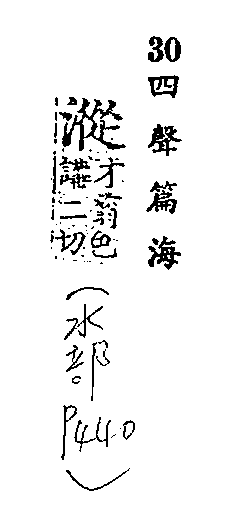 30四聲篇海
漎才翁色
講二切
(水部。
P440)